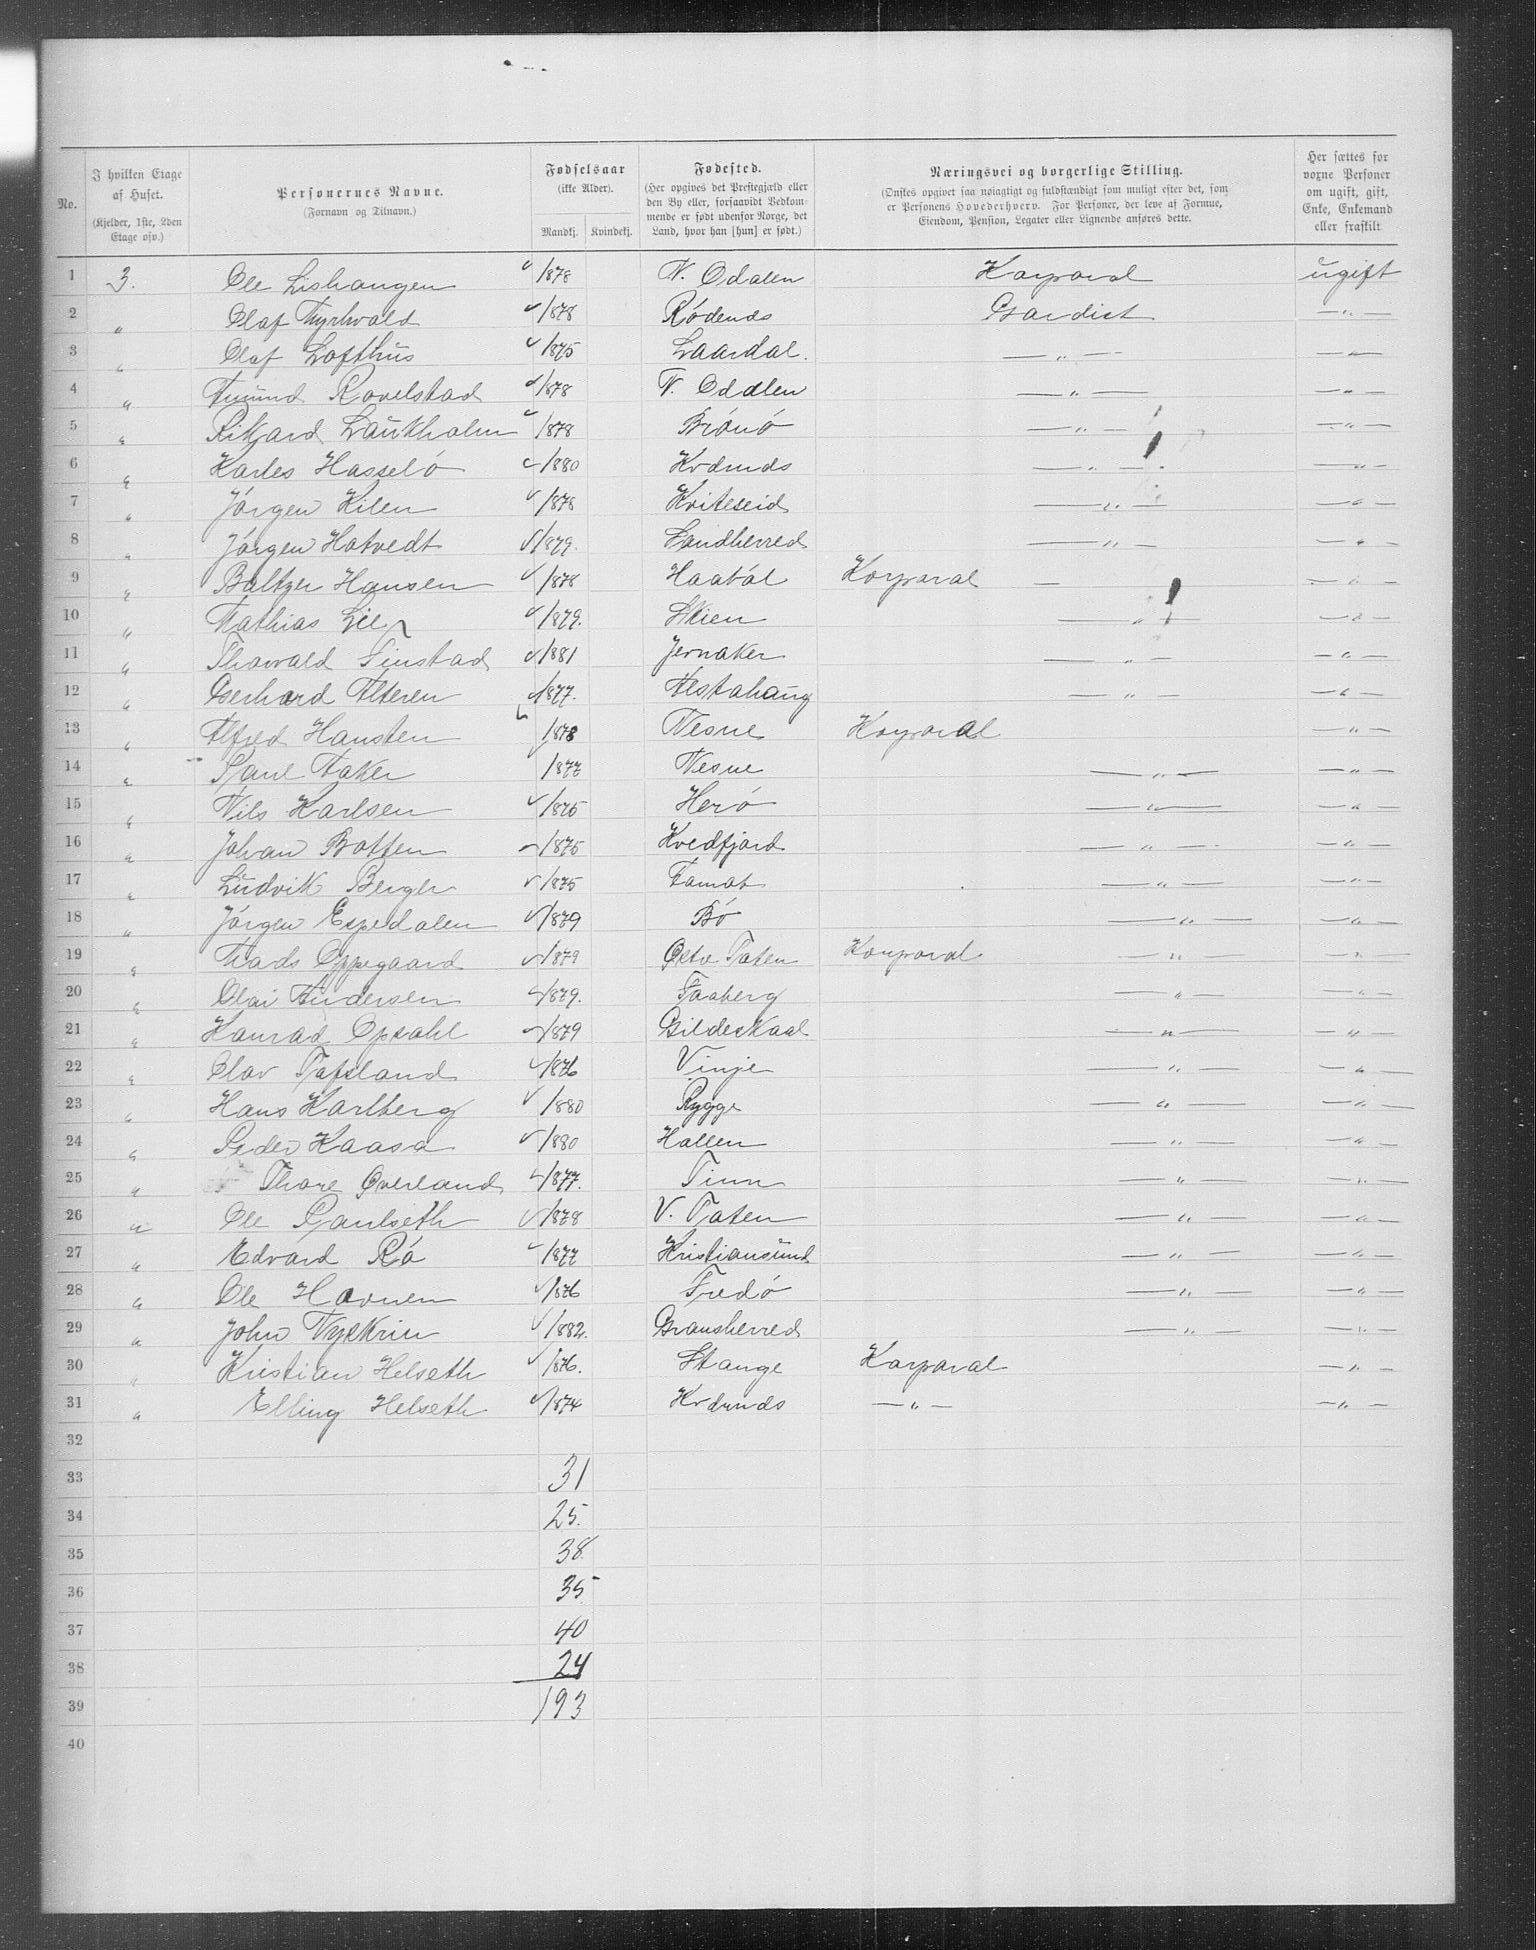 No.
I hvilken Etage af Huset.
(Kjelder, 1ste, 2den Etage osv.)
Personernes Navne.
(Fornavn og Tilnavn.)
Fødselsaar
(ikke Alder).
Mandkj. Kvindekj.
Fødested.
(Her opgives det Prestegjæld eller den By eller, forsaavidt Vedkommende er født udenfor Norge, det Land, hvor han [hun] er født.)
Næringsvei og borgerlige Stilling.
(Ønskes opgivet saa nøiagtigt og fuldstændigt som muligt efter det, som er Personens Hovederhverv. For Personer, der leve af Formue, Eiendom, Pension, Legater eller Lignende anføres dette.
Her sættes for voxne Personer om ugift, gift, Enke, Enkemand eller fraskilt
1 3. Ole Lishaugen 1878 N. Odalen Korporal ugift
2 " Olaf Myrhvold 1878 Rødenæs Gardist —"—
3 " Olaf Lofthus 1875 Laardal. —"— —"—
4 " Amund Ravelstad 1878 N. Odalen —"— —"—
5 " Rikard Laukholm 1878 Brønø —"— —"—
6 " Karles Hasselø 1880 Kvdnæs —"— —"—
7 " Jørgen Kilen 1878 Kviteseid —"— —"—
8 " Jørgen Hotvedt 1879. Sandherred —"— —"—
9 " Baltzer Hansen 1878 Haabøl Korporal — —"—
10 " Mathias Lie 1879. Skien —"— —"—
11 " Thorvald Finstad 1881 Jevnaker —"— —"—
12 " Gerhard Alteren 1877. Alstahaug —"— —"—
13 " Alfred Hansten 1878 Nesne Korporal —"—
14 " Paul Aaker 1877 Nesne —"— —"—
15 " Nils Karlsen 1875 Herø —"— —"—
16 " Johan Botten 1875 Kvedfjord —"— —"—
17 " Ludvik Berger 1875 —"— —"—
18 " Jørgen Espedalen 1879 Bø —"— —"—
19 " Mads Oppegaard 1879 Østv Toten Korporal —"— —"—
20 " Olai Andersen 1879. Faaberg —"— —"—
21 " Konrad Opsahl 1879 Gildeskaal —"— —"—
22 " Olav 1876 Vinje —"— —"—
23 " Hans Karlberg 1880 Rygge —"— —"—
24 " Peder Kaasa 1880 Hallen —"— —"—
25 " Thore Øverland 1877. Tinn —"— —"—
26 " Ole Paulseth 1878 V. Toten —"— —"—
27 " Edvard Rø 1877 Kristiansund —"— —"—
28 " Ole Hovnen 1876 Fredø —"— —"—
29 " John Nyskrin 1882. Gransherred —"— —"—
30 " Kristian Helseth 1876. Stange Korporal —"—
31 " Elling Helseth 1874 Kvdnæs —"— —"—
32
33 31
34 25.
35 38
36 35
37 40
38 24
39 193
40